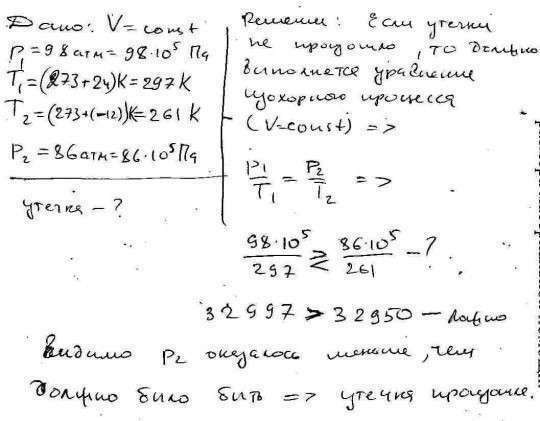 Дано: V = const
P₁ = 98 атм = 98·10⁵ Па
T₁ = (273+24)K = 297 K
T₂ = (273+(-12))K = 261 K
P₂ = 86 атм = 86·10⁵ Па
утечка - ?
Решение: Если утечки
не произошло, то должно
выполняется уравнение
изохорного процесса
(V=const) =>
P₁/T₁ = P₂/T₂ =>
98·10⁵/297 ≷ 86·10⁵/261 - ?
32997 > 32950 -
Видимо P₂ оказалось меньше, чем
должно было быть => утечка произошла.